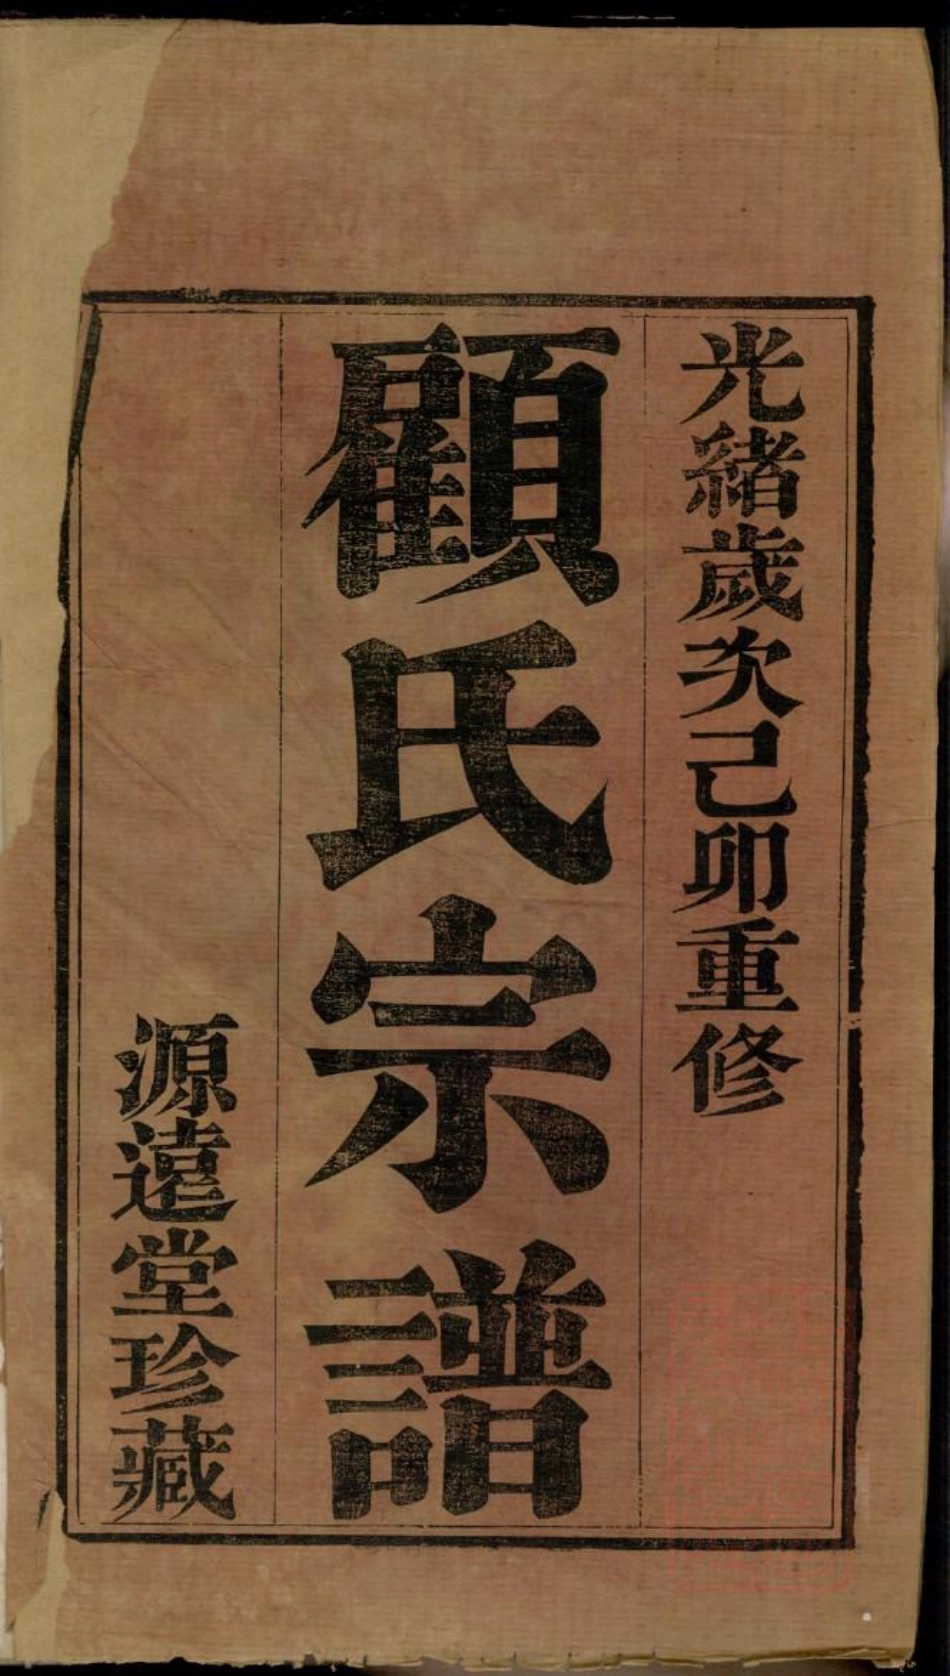 光緒歲次己卯重修
顧氏宗譜
源遠堂珍藏